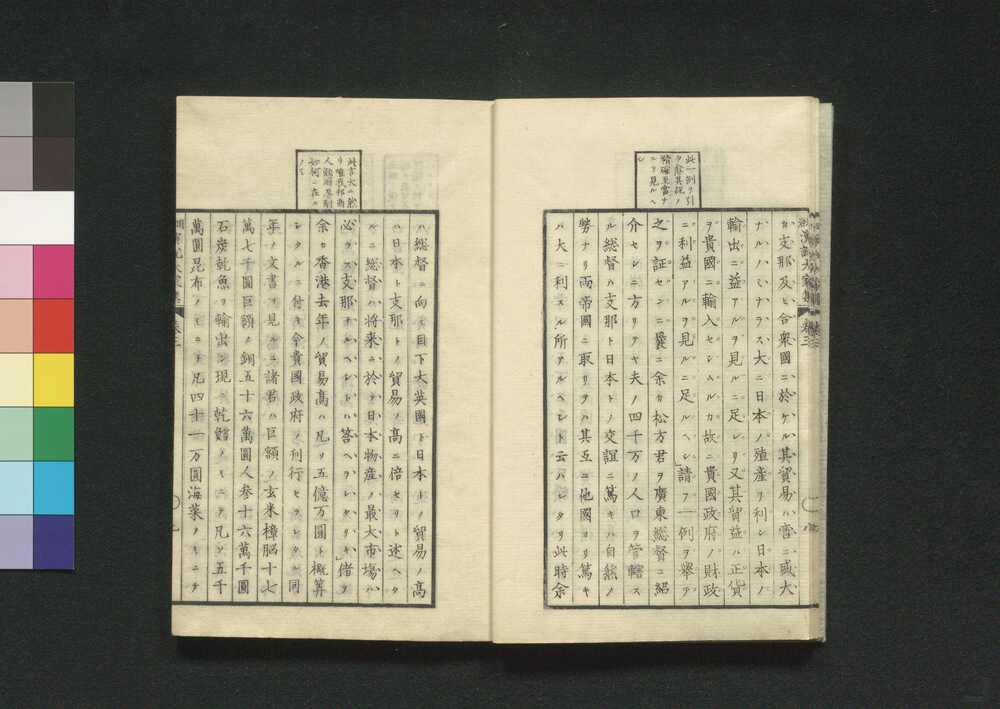 此一例ヲ引
カ支那及ヒ合衆國ニ於ケル其貿易ハ啻ニ盛大
ナルノミナラス大ニ日本ノ殖産ヲ利シ日本ノ
輸出ニ益アルヲ見ルニ足レリ又其貿益ハ正貨
ヲ貴國ニ輸入セシムルカ故ニ貴國政府ノ財政
ニ利益アルヲ見ルニ足ルヘシ請フ一例ヲ擧テ
之ヲ証センニ曩ニ余カ松方君ヲ廣東総督ニ紹
介セシニ方リテヤ夫ノ四千万ノ人口ヲ管轄ス
ル総督ハ支那ト日本トノ交誼ニ篤キハ自然ノ
勢ナリ両帝國ニ取リテハ其互ニ他國ヨリ篤キ
ハ大ニ利スル所アルヘシト云ハレタリ此時余
ハ総督ニ向テ目下大英國ト日本トノ貿易ノ高
ハ日本ト支那トノ貿易ノ高ニ倍セリト述ヘタ
ルニ総督ハ将来ニ於テ日本物産ノ最大市場ハ
必ラス支那ナルヘシトハ答ヘラレタリキ」偖テ
余カ香港去年ノ貿易高ハ凡ソ五億万圓ト概算
シタルニ付キ今貴國政府ノ刊行セラレタル同
年ノ文書ヲ見ルニ諸君ハ巨額ノ玄米樟脳十七
萬七千圓巨額ノ銅五十六萬圓人参十六萬千圓
石炭乾魚ヲ輸出シ現ニ乾鰑ノミニテ凡ソ五千
萬圓昆布ノミニテ凡四十一万圓海菜ノミニテ